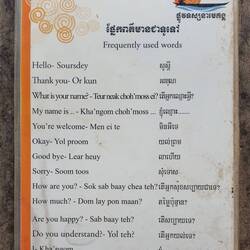 ផ្លូវទស្សនាមេគង្គ
ផ្នែកពាក្យមានជាទូទៅ
Frequently used words
Hello- Soursdey សួស្តី
Thank you- Or kun អរគុណ
What is your name? - Teur neak choh'moss ei? តើអ្នកឈ្មោះអ្វី?
My name is .. - Kha'ngom choh'moss ... ខ្ញុំឈ្មោះ......
You're welcome- Men ei te មិនអីទេ
Okay- Yol proom យល់ព្រម
Good bye- Lear heuy លាហើយ
Sorry- Soom toos សុំទោស
How are you? - Sok sab baay chea teh? តើអ្នកសុខសប្បាយជាទេ?
How much? - Dom lay pon maan? តម្លៃប៉ុន្មាន?
Are you happy? - Sab baay teh? តើសប្បាយទេ?
Do you understand?- Yol teh? តើអ្នកយល់ទេ?